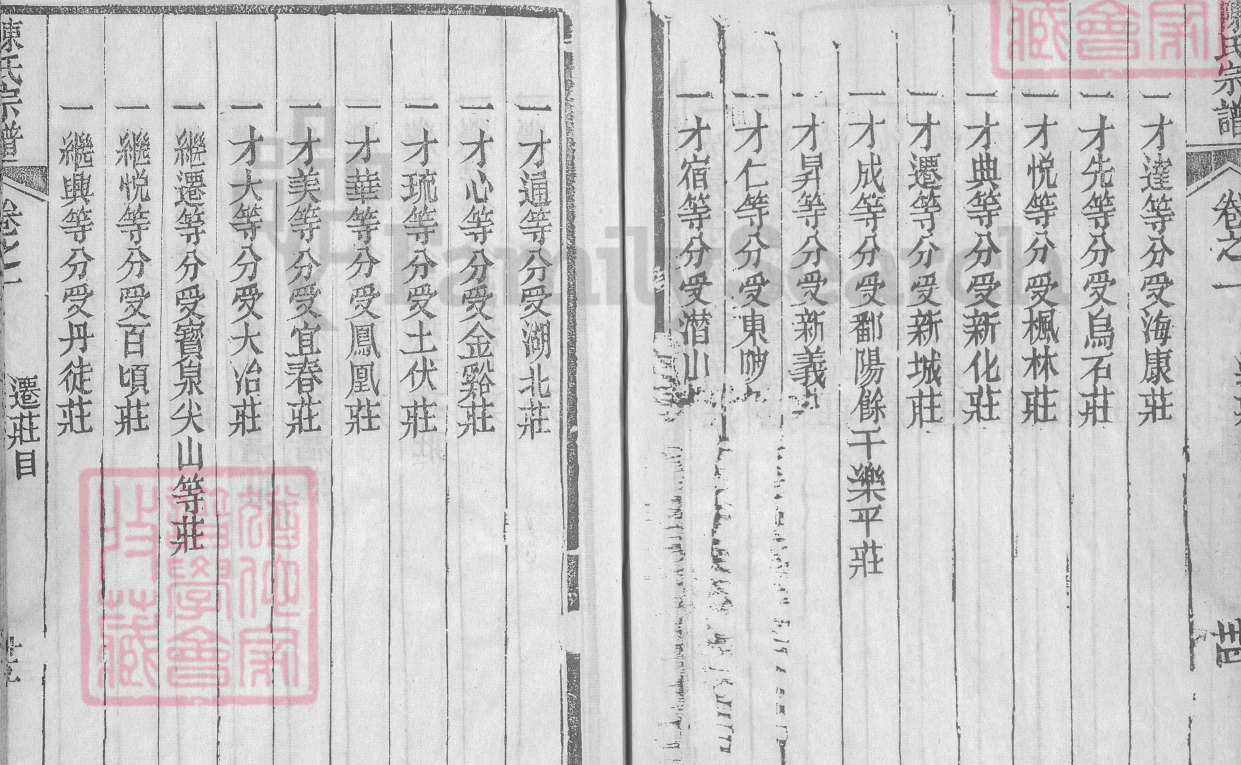 陳氏宗譜
卷之一
廿四
一才達等分受海康莊
一才先等分受烏石莊
一才悦等分受楓林莊
一才典等分受新化莊
一才遷等分受新城莊
一才成等分受鄱陽餘干樂平莊
一才昇等分受新義
一才仁等分受東
一才宿等分受潛山
一才通等分受湖北莊
一才心等分受金谿莊
一才琉等分受土伏莊
一才華等分受鳳凰莊
一才美等分受宜春莊
一才大等分受大冶莊
一繼遷等分受寶泉尖山等莊
一繼悦等分受百頃莊
一繼興等分受丹徒莊
陳氏宗譜
卷之一
遷莊目
FamilySearch